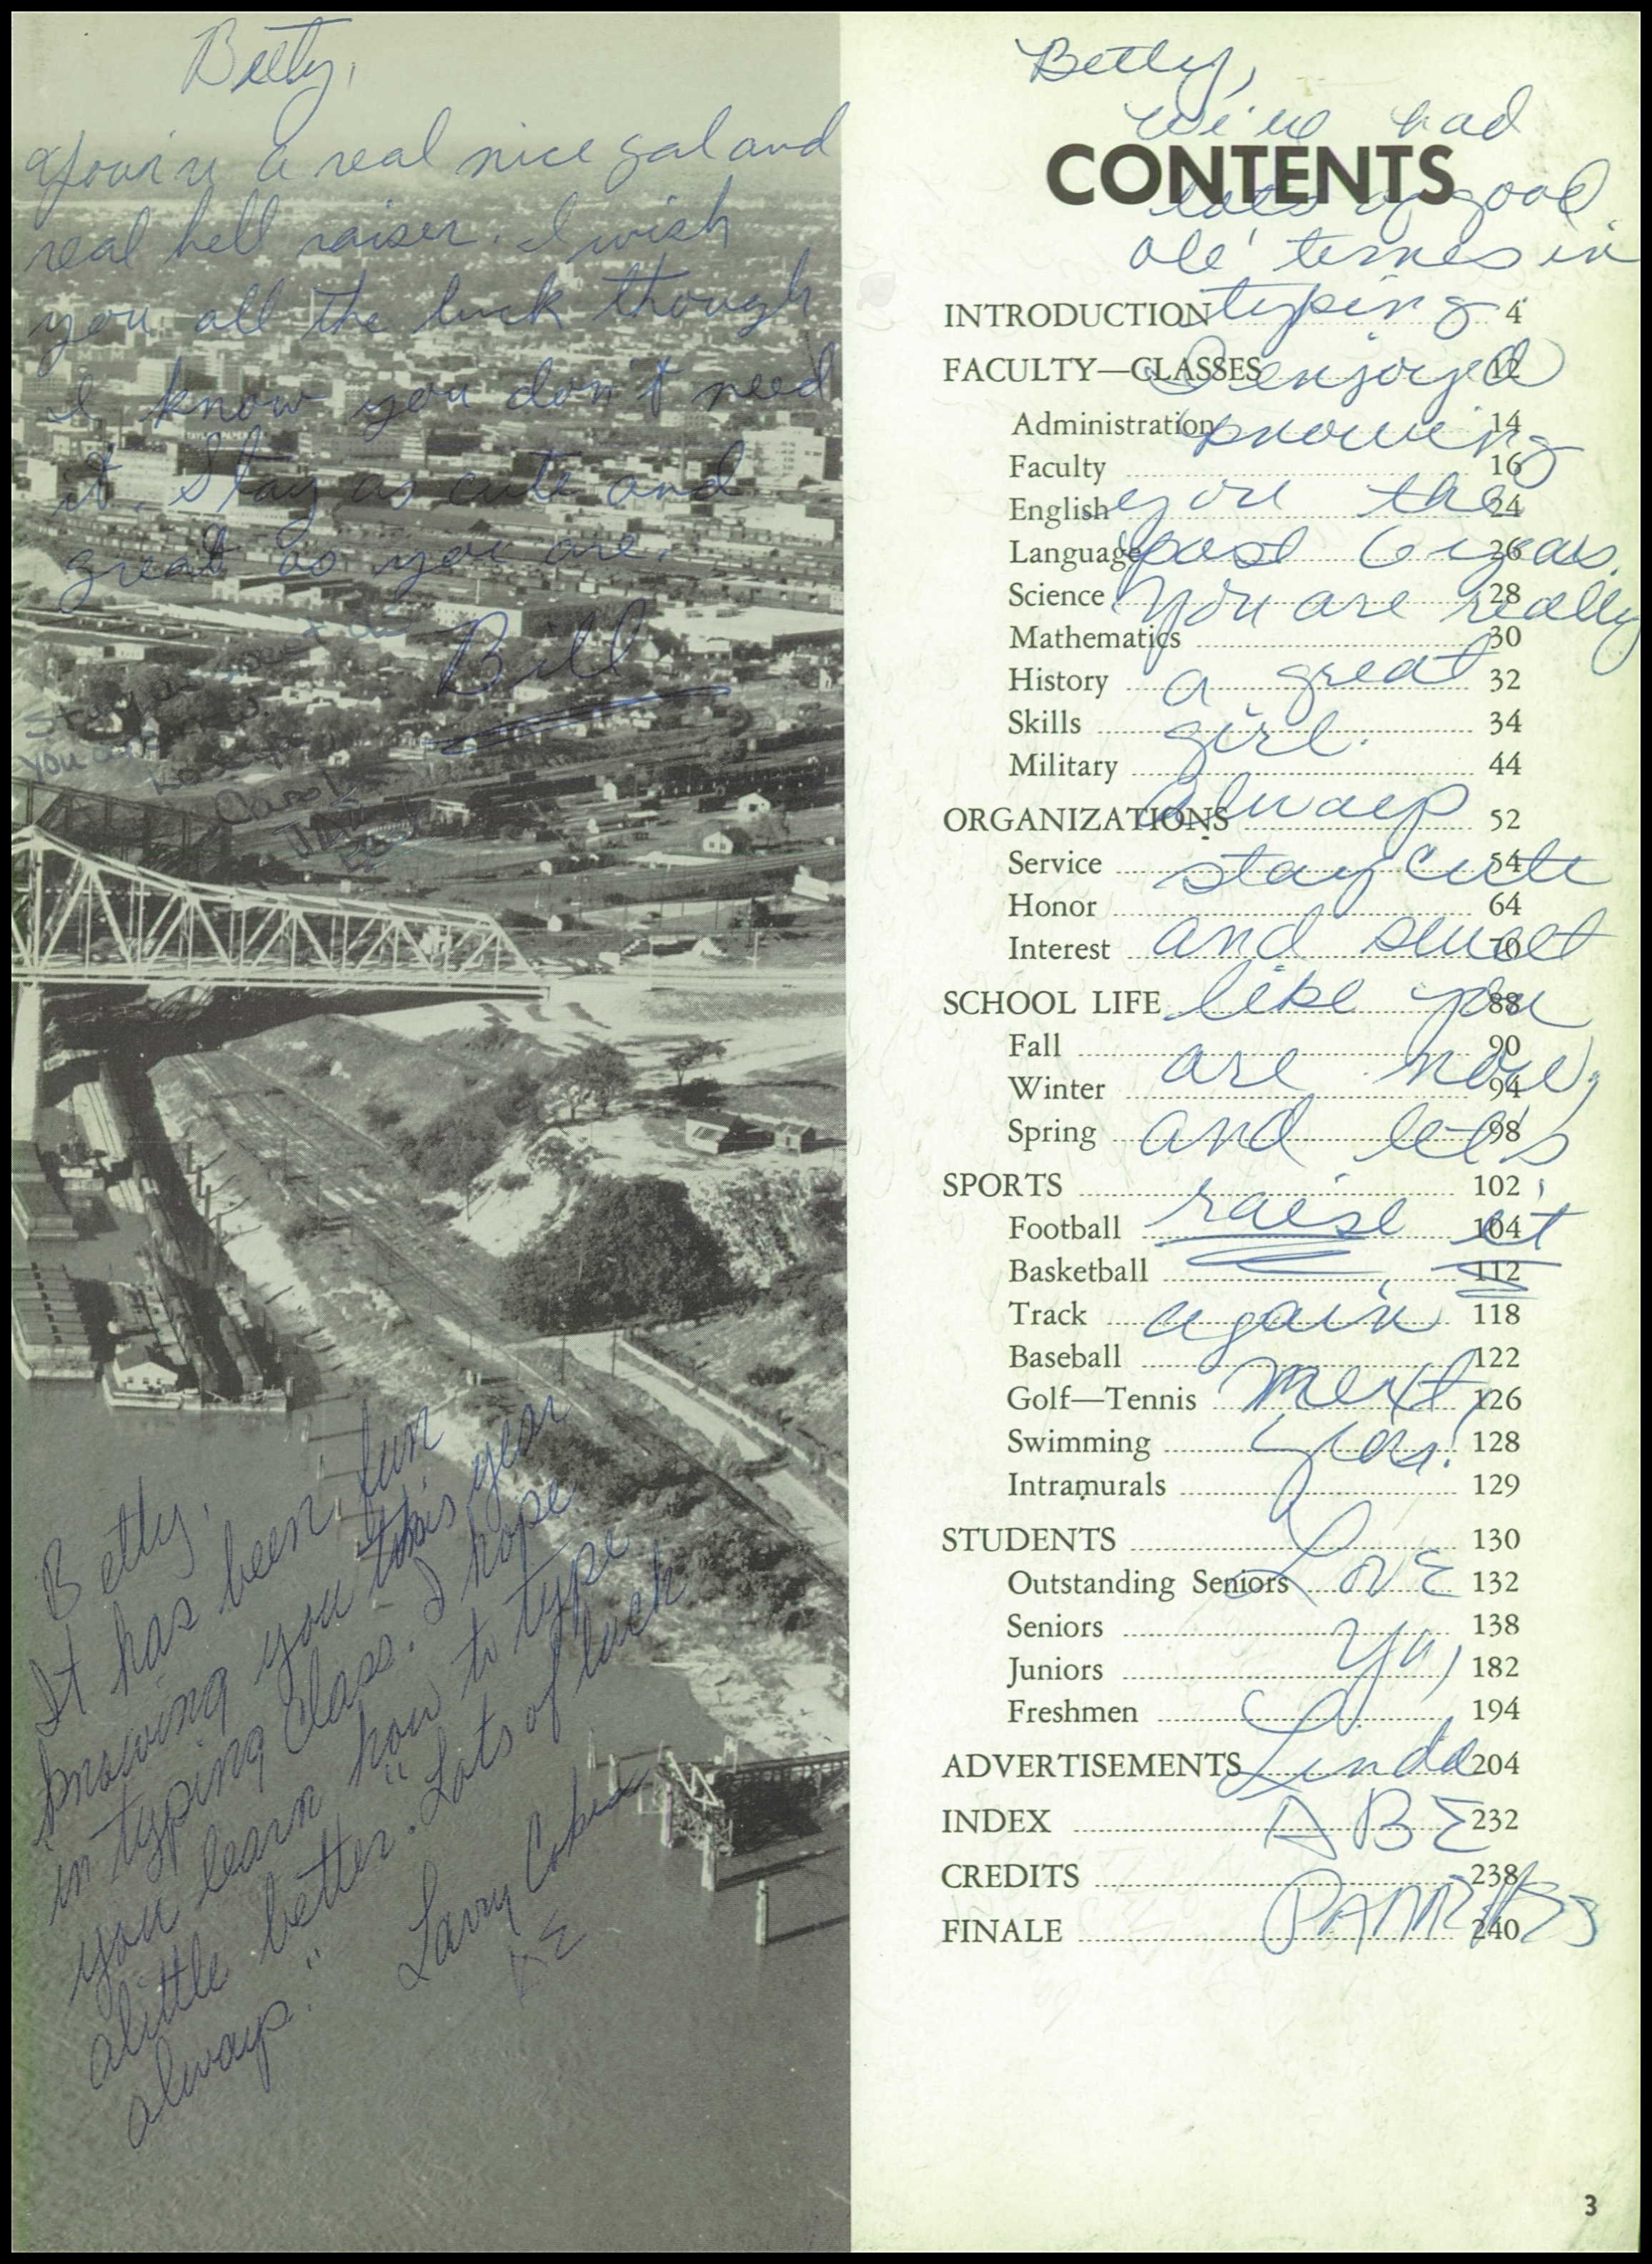 Betty,
You're a real nice gal and
real hell raiser. I wish
you all the luck though
I know you don't need
it. Stay as cute and
great as you are.
Bill
Stay
you are now.
Carol
Betty,
It has been fun
knowing you this year
in typing class. I hope
you learn how to type
alittle better. "Lots of luck
always."
Larry
Betty,
We've had
lots of good
ole' times in
typing
I enjoyed
knowing
you the
past 6 years.
You are really
a great
girl.
Always
stay cute
and sweet
like you
are now,
and let's
raise it
again
next
year!
Love
Ya,
Linda
ABE
CONTENTS
INTRODUCTION 4
FACULTY—CLASSES 12
Administration 14
Faculty 16
English 24
Language 26
Science 28
Mathematics 30
History 32
Skills 34
Military 44
ORGANIZATIONS 52
Service 54
Honor 64
Interest 70
SCHOOL LIFE 88
Fall 90
Winter 94
Spring 98
SPORTS 102
Football 104
Basketball 112
Track 118
Baseball 122
Golf—Tennis 126
Swimming 128
Intramurals 129
STUDENTS 130
Outstanding Seniors 132
Seniors 138
Juniors 182
Freshmen 194
ADVERTISEMENTS 204
INDEX 232
CREDITS 238
FINALE 240
3